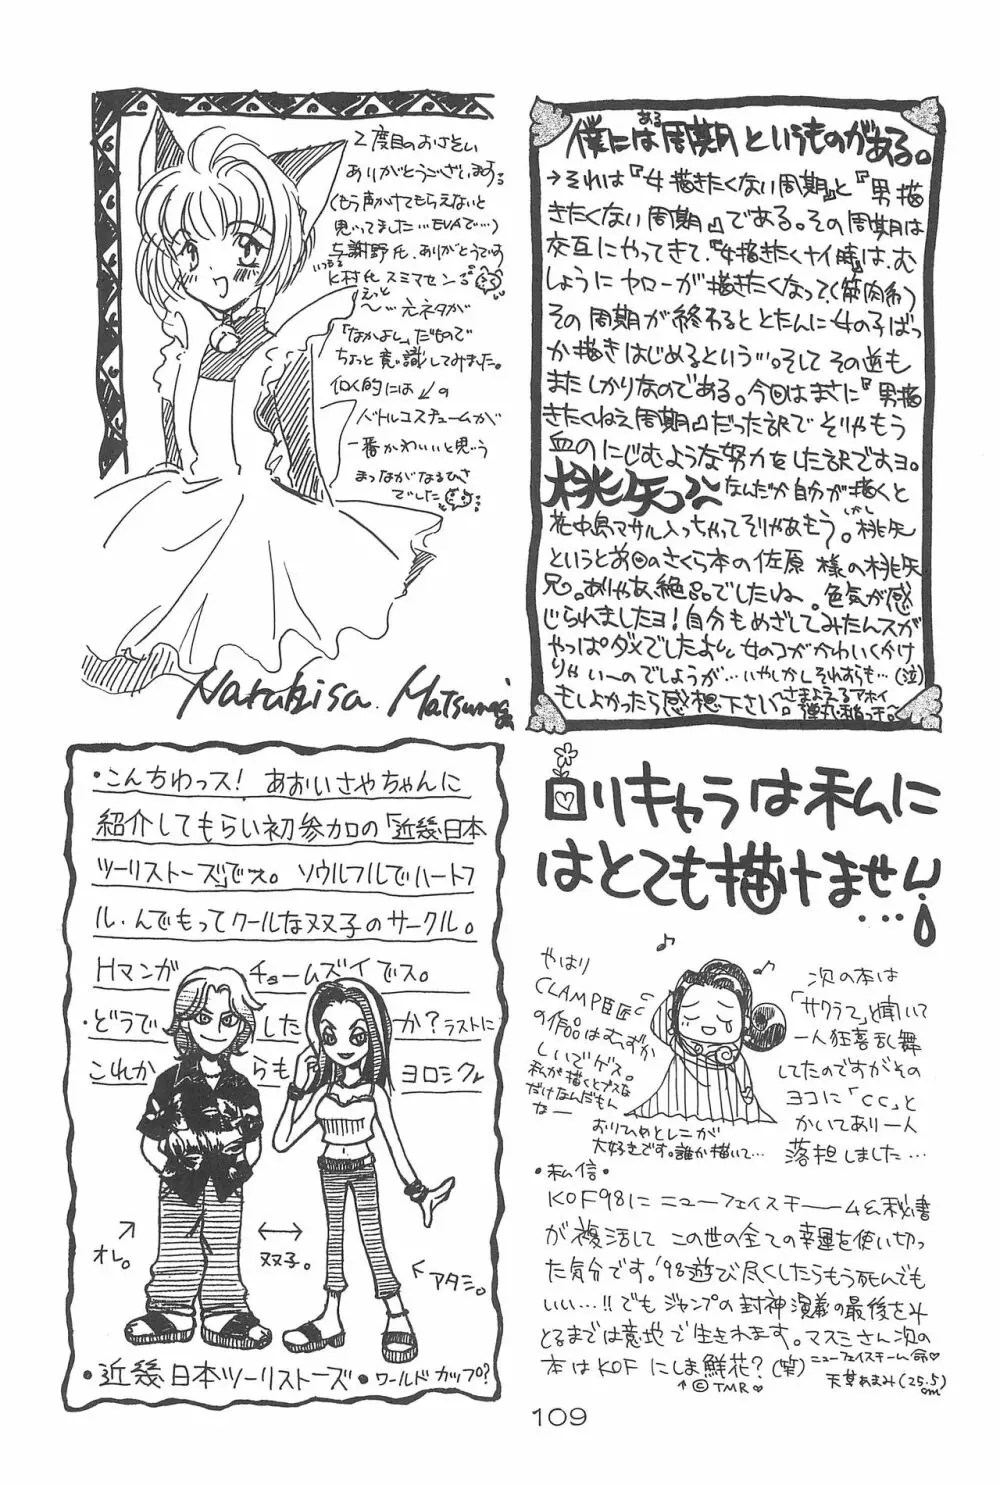 2度目のおさそい
ありがとうございます
(もう声かけてもらえないと
思ってました…EVAで…)
与謝野氏、ありがとうでス
いつも
K村氏スミマセンる
えっと
〜…元ネタが
「なかよし」だもので
ちょっと意識してみました。
個人的には↙の
バトルコスチュームが
一番かわいいと思う
まつながなるひさ
でした
Naruhisa. Matsunaga
僕にはある周期というものがある。
→それは『女描きたくない周期』と『男描
きたくない周期』である。その周期は
交互にやってきて、『女描きたくナイ時』は、む
しょうにヤローが描きたくなって(筋肉系)
その周期が終わるととたんに女の子ばっ
か描きはじめるという…。そしてその逆も
またしかりなのである。今回はまさに『男描
きたくねえ周期』だった訳でそりゃもう
血のにじむような努力をした訳ですヨ。
桃矢っ なんだか自分が描くと
花中島マサル入っちゃってそりゃあもう。しかし桃矢
というと前回のさくら本の佐原 様の桃矢
兄。ありゃあ、絶品でしたね。色気が感
じられましたヨ!自分もめざしてみたんスが
やっぱダメでしたよ。女のコがかわいくかけ
りゃいーのでしょうが…いやしかしそれすらも…(泣)
もしよかったら感想下さい。〜さまよえるアホイ
弾丸稲っ子。〜
・こんちわっス! あおいさやちゃんに
紹介してもらい初参加の「近畿日本
ツーリストーズ」でス。ソウルフルでハートフ
ル・んでもってクールな双子のサークル。
Hマンガ チョームズイでス。
・どうで した か?ラストに
これか らも ヨロシク
オレ。
双子。
アタシ。
・近畿日本ツーリストーズ・ワールドカップ?
ロリキャラは私に
はとても描けません!
…
やはり
CLAMP巨匠
の作品はむずか
しいでゲス。
私が描くとブスな
だけなんだもん
なー
おりひめとレニが
大好きです。誰か描いて…
次の本は
「サクラ」と聞いて
一人狂喜乱舞
してたのですがその
ヨコに「CC」と
かいてあり一人
落胆しました…
・私信・
KOF98にニューフェイスチームと秘書
が復活してこの世の全ての幸運を使い切っ
た気分です。'98遊び尽くしたらもう死んでも
いい…!!でもジャンプの封神演義の最後を斗
とるまでは意地で生きれます。マスミさん次の
本はKOFにしま鮮花?(笑)ニューフェイスチーム命♡
↑©TMR♡
天草あまみ(25.5)
cm
109